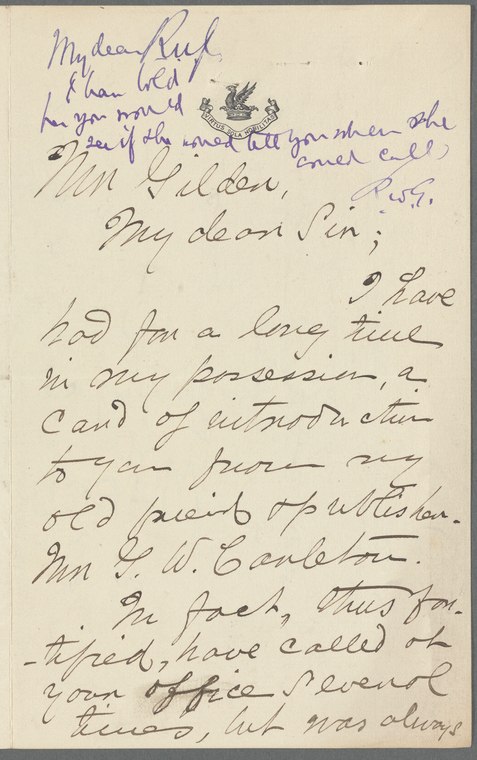 My dear Ruf
I have told
her you would
see if she would tell you when she
could call
R.W.G.
VIRTUS SOLA NOBILITAS
Mr Gilder,
My dear Sir;
I have
had for a long time
in my possession, a
card of introduction
to you from my
old friend & publisher.
Mr G. W. Carleton.
In fact, thus for-
-tified, have called at
your office several
times, but was always